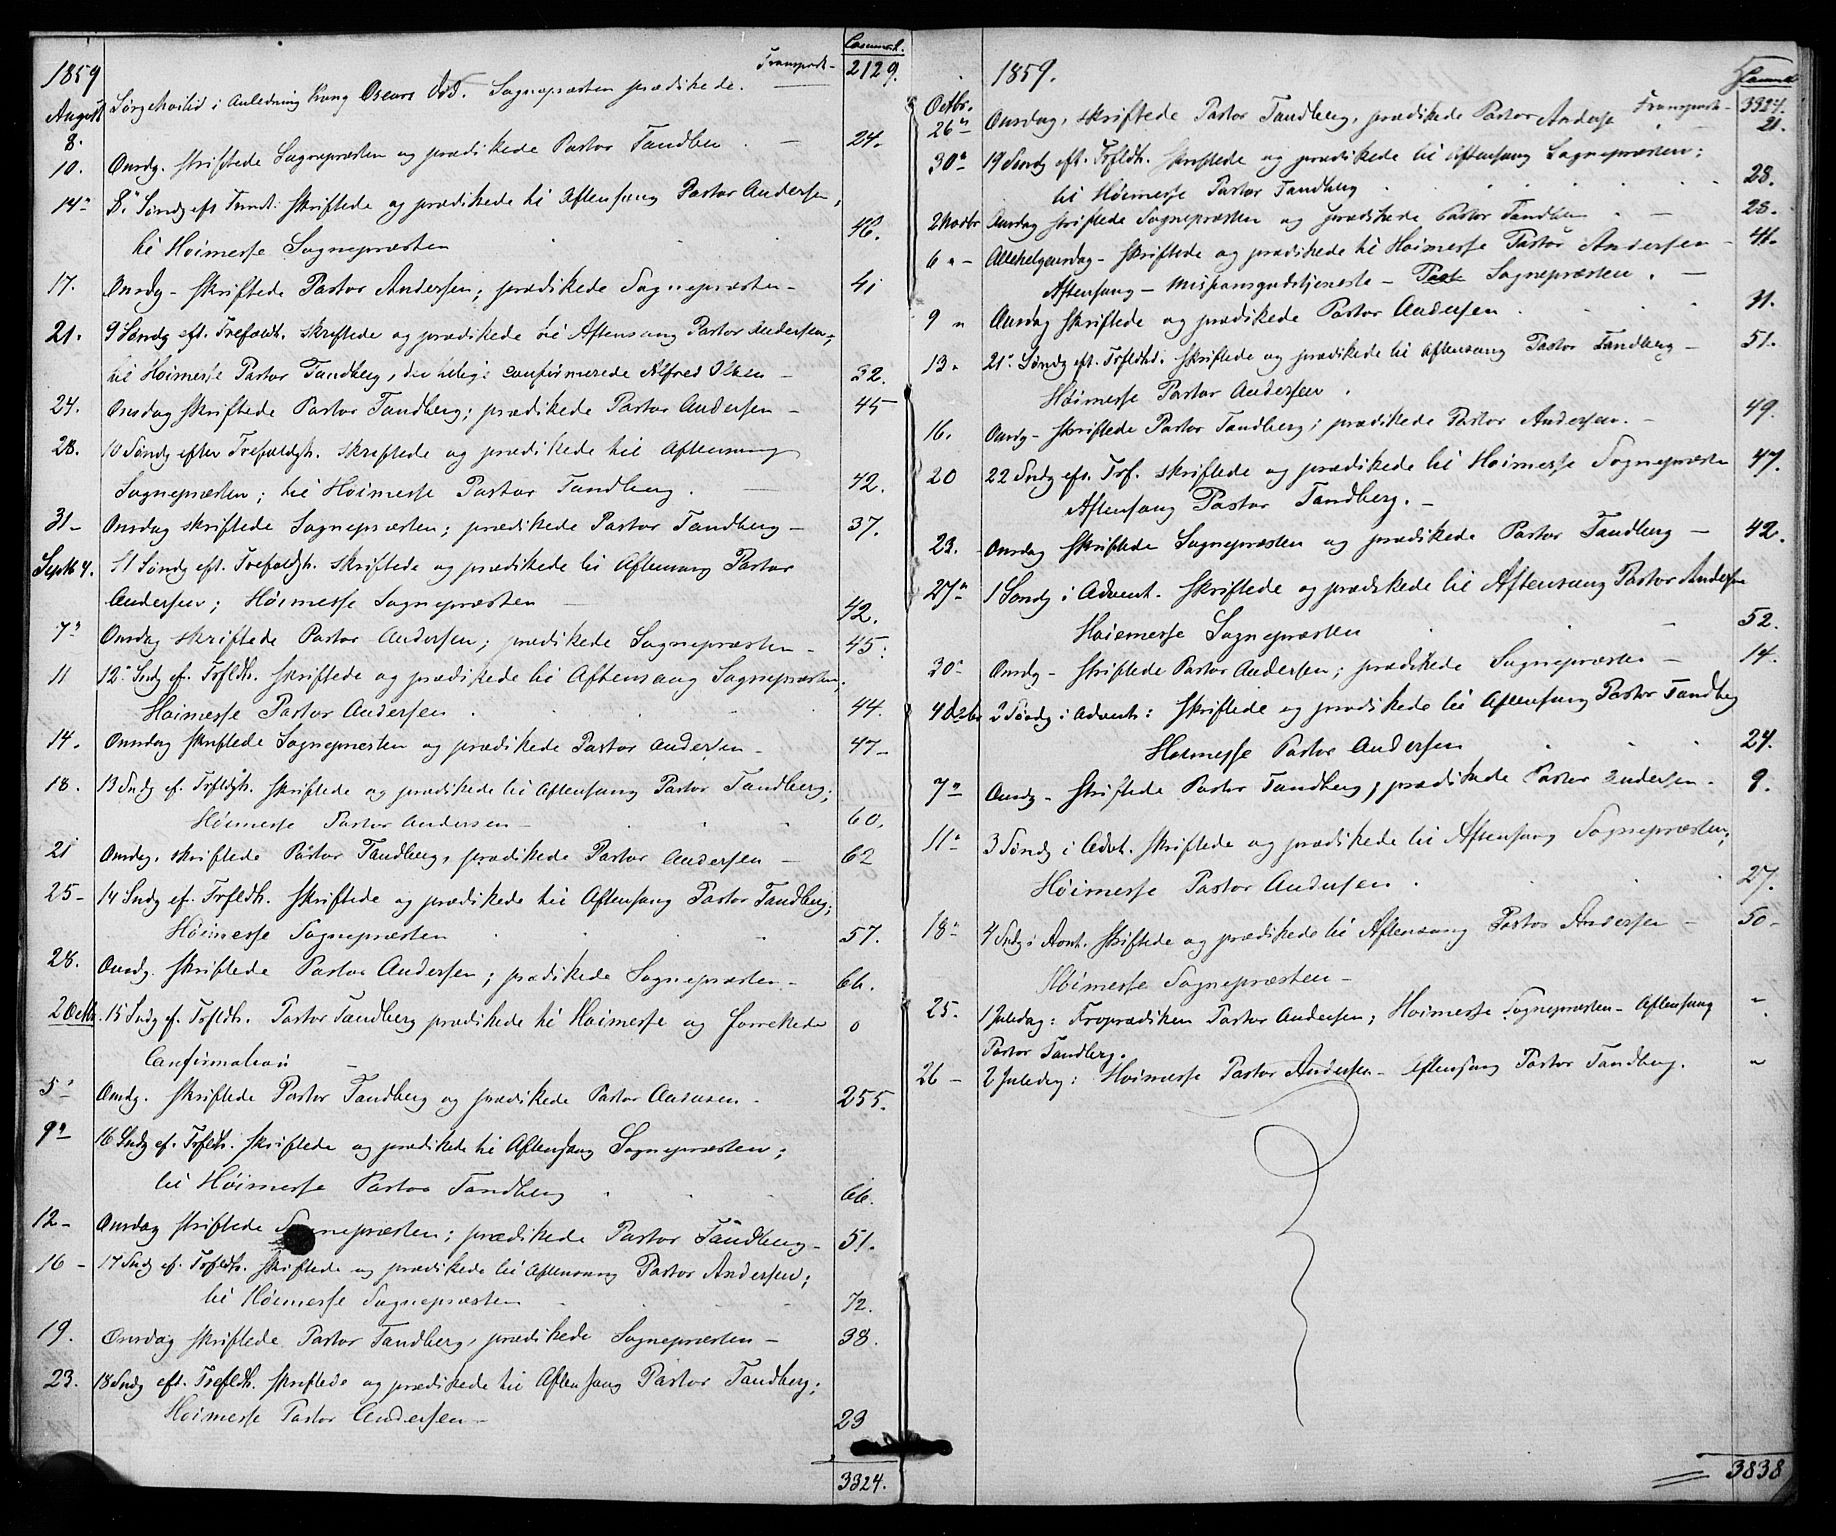 1859
Commun.
Transport - 2129.
August 8. Sørgehøitid i Anledning Kong Oscars Død. Sognepræsten prædikede. —
10. Onsdg. skriftede Sognepræsten og prædikede Pastor Tandberg — 24.
14" 8. Søndg eft Trindt: skriftede og prædikede til Aftensang Pastor Andersen,
til Høimesse Sognepræsten 46.
17. Onsdg - skriftede Pastor Andersen; prædikede Sognepræsten - 41
21. 9 Søndg eft. Trefoldh. skriftede og prædikede til Aftensang Pastor Andersen,
til Høimesse Pastor Tandberg, der confirmerede Alfred Olsen - 32.
24. Onsdag skriftede Pastor Tandberg; prædikede Pastor Andersen - 45
28. 10 Søndg efter Trefoldgh. skriftede og prædikede til Aftensang
Sognepræsten; til Høimesse Pastor Tandberg. 42.
31 - Onsdag skriftede Sognepræsten; prædikede Pastor Tandberg - 37.
Septb 4. 11 Søndg eft. Trefoldgh. skriftede og prædikede til Aftensang Pastor
Andersen; Høimesse Sognepræsten — 42.
7" Onsdag skriftede Pastor Andersen; prædikede Sognepræsten - 45.
11 12" Sndg ef. Trfldh. skriftede og prædikede til Aftensang Sognepræsten;
Høimesse Pastor Andersen 44.
14. Onsdag skriftede Sognepræsten og prædikede Pastor Andersen - 47 -
18. 13 Sndg ef. Trfldgh. skriftede og prædikede til Aftensang Pastor Tandberg;
Høimesse Pastor Andersen - 60.
21 Onsdg. skriftede Pastor Tandberg, prædikede Pastor Andersen - 62
25 - 14 Sndg ef. Trfldh. skriftede og prædikede til Aftensang Pastor Tandberg;
Høimesse Sognepræsten 57.
28. Onsdg. skriftede Pastor Andersen; prædikede Sognepræsten - 66.
2 Octbr. 15 Sndg ef. Trfldh. Pastor Tandberg prædikede til Høimesse og forrettede 0
Confirmation —
5" Onsdg. skriftede Pastor Tandberg og prædikede Pastor Andersen - 255.
9" 16 Sndg ef. Trfldh. skriftede og prædikede til Aftensang Sognepræsten;
til Høimesse Pastor Tandberg 66.
12 - Onsdag skriftede Sognepræsten; prædikede Pastor Tandberg - 51.
16 - 17 Sndg ef. Trfldh. skriftede og prædikede til Aftensang Pastor Andersen;
til Høimesse Sognepræsten 72.
19. Onsdag skriftede Pastor Tandberg, prædikede Sognepræsten - 38.
23. 18 Sndg eft. Trefldh. skriftede og prædikede til Aftensang Pastor Tandberg;
Høimesse Pastor Andersen - 23
3324.
1859.
Commun.
Transport - 3324.
Octbr. 26" Onsdag, skriftede Pastor Tandberg, prædikede Pastor Anderse 21.
30" 19 Sndg eft. Trfldh. skriftede og prædikede til Aftensang Sognepræsten;
til Høimesse Pastor Tandberg 28.
2 Novbr Onsdag skriftede Sognepræsten og prædikede Pastor Tandberg — 28.
6 " - Allehelgensdag - skriftede og prædikede til Høimesse Pastor Andersen - 41.
Aftensang - Missionsgudstjeneste - Past Sognepræsten. -
9 " Onsdag skriftede og prædikede Pastor Andersen 31.
13 " 21" Søndg eft. Trfldhd. skriftede og prædikede til Aftensang Pastor Tandberg - 51.
Høimesse Pastor Andersen.
16. Onsdg - skriftede Pastor Tandberg; prædikede Pastor Andersen. - 49.
20 22 Sndg eft. Trf. skriftede og prædikede til Høimesse Sognepræsten 47.
Aftensang Pastor Tandberg. -
23. Onsdag skriftede Sognepræsten og prædikede Pastor Tandberg - 42.
27" 1 Søndg i Advent. skriftede og prædikede til Aftensang Pastor Andersen
Høiemesse Sognepræsten 52.
30" Onsdg - skriftede Pastor Andersen; prædikede Sognepræsten - 14.
4 Decbr 2 Søndg i Advent: skriftede og prædikede til Aftensang Pastor Tandberg
Høimesse Pastor Andersen 24.
7" Onsdg - skriftede Pastor Tandberg, prædikede Pastor Andersen. 9.
11" 3 Søndg i Advt. skriftede og prædikede til Aftensang Sognepræsten;
Høimesse Pastor Andersen. 27.
18" 4 Sndg i Avnt. skriftede og prædikede til Aftensang Pastor Andersen - 50 -
Høimesse Sognepræsten -
25. 1 Juledag: Froprædiken Pastor Andersen; Høimesse Sognepræsten - Aftensang "
Pastor Tandberg.
26 - 2 Juledag: Høimesse Pastor Andersen - Aftensang Pastor Tandberg. "
3838